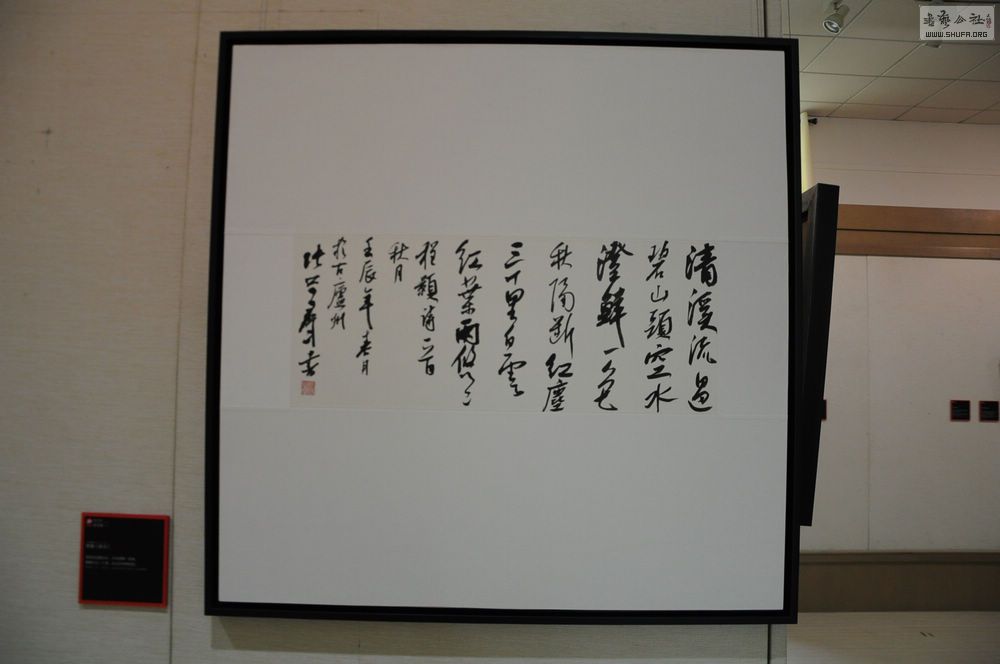 清溪流過
碧山頭空水
澄鮮一色
秋隔斷紅塵
三十里白雲
紅葉兩悠々
程顥詩一首
秋月
壬辰年春月
於古廬州
書藝公社
WWW.SHUFA.ORG